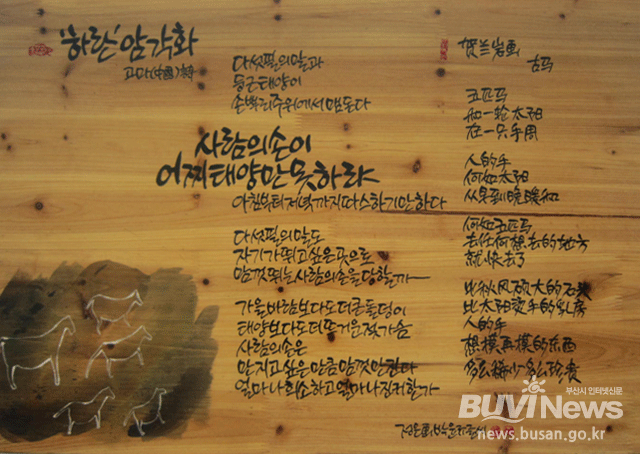 '하란' 암각화
고마(中國)
다섯필의 말과
둥근 태양이
손바닥 주위에서 맴돈다
사람의 손이
어찌 태양만 못하랴
아침부터 저녁까지 따스하기만 하다
다섯필의 말도
자기가 뛰고 싶은 곳으로
맘껏 뛰는 사람의 손을 당할까
가을바람보다도 더 큰 돌덩이
태양보다도 더 뜨거운 젖가슴
사람의 손은
만지고 싶은 만큼 맘껏 만진다
얼마나 희소하고 얼마나 진귀할가
贺兰岩画
古马
五匹马
和一轮太阳
在一只手周
人的手
何如太阳
从早到晚暖和
何如五匹马
去任何想去的地方
就快去了
比秋风硕大的石头
比太阳烫手的乳房
人的手
想摸再摸的东西
多么稀少多么珍贵
부산시 인터넷신문
BUVI News
news.busan.go.kr